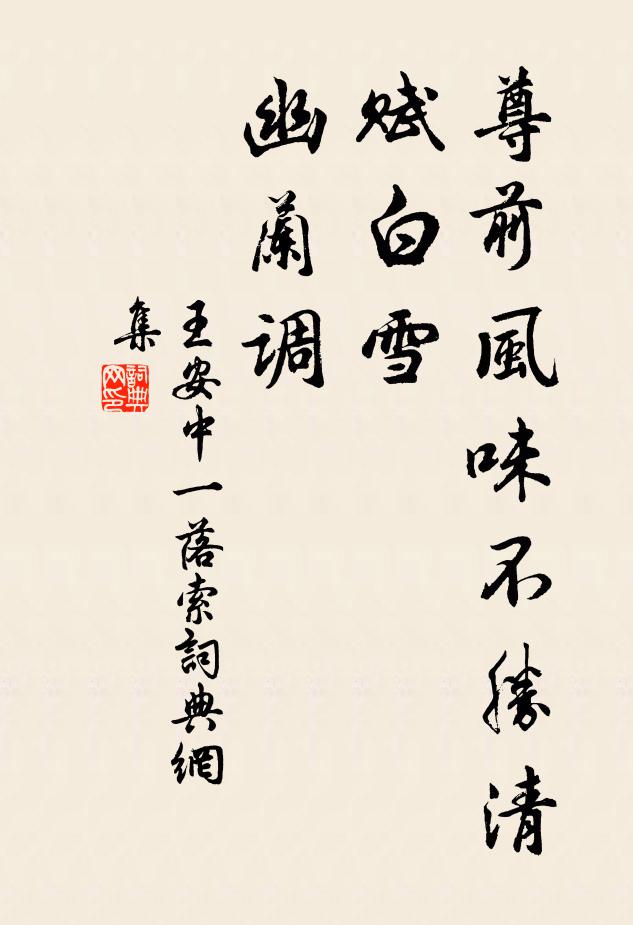 尊前風味不勝清
賦白雪
幽蘭調
王安中一落索詞典網
集
詞典
网印